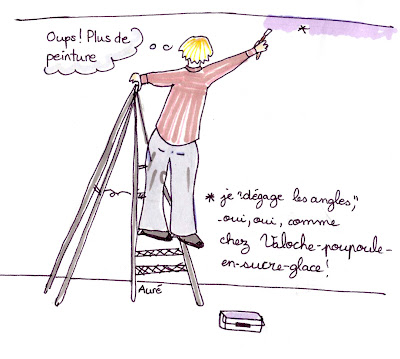 Oups! Plus de
peinture
*
* je "dégage les angles",
-oui, oui, comme
chez Valoche-poupoule-
en-sucre-glace!
Auré